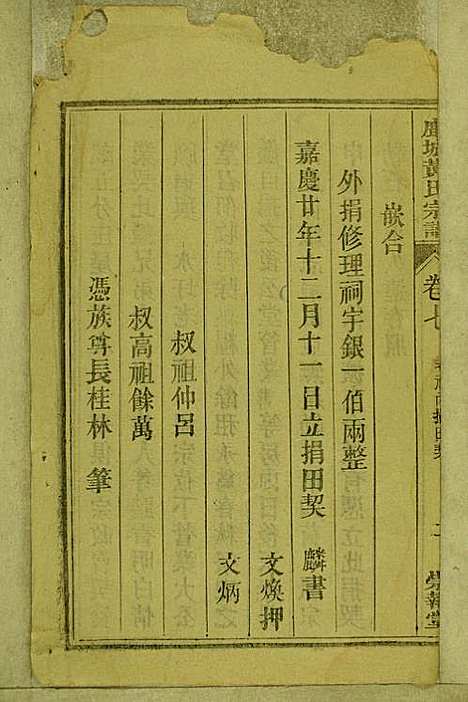 鹿城黃氏宗譜 卷七
嵌合
外捐修理祠宇銀一佰兩整
嘉慶廿年十二月十一日立捐田契 麟書
文煥押
叔祖仲呂 文炳
叔高祖餘萬
憑族尊長桂林 筆